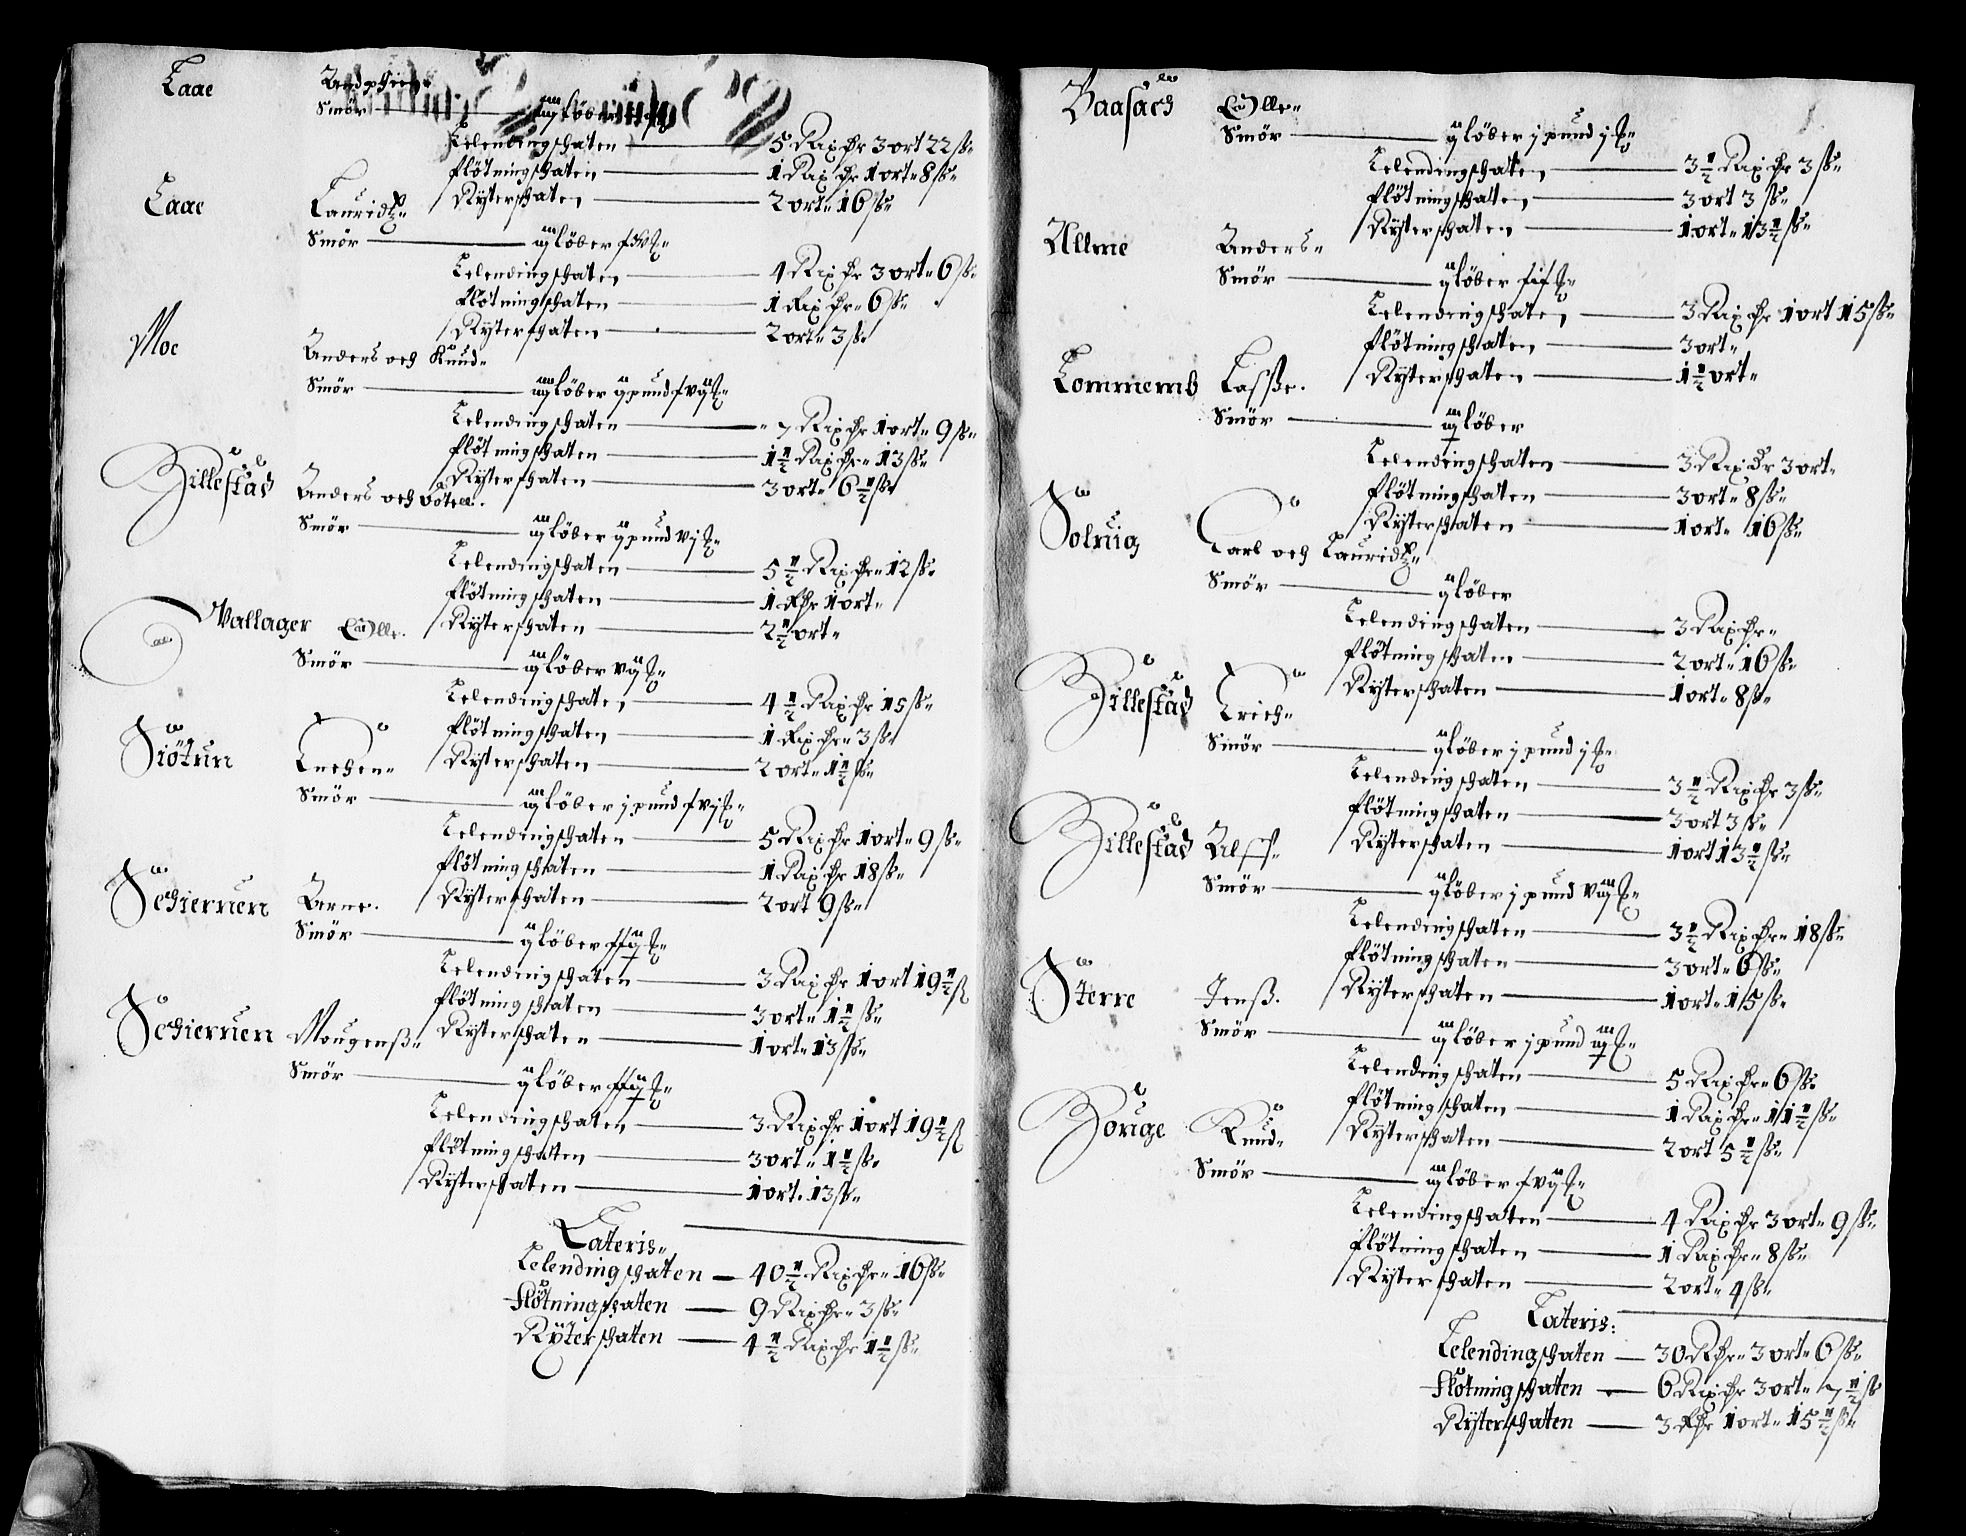 Laae
Smör
Lelendingschaten 5 Rixdr 3 ort 22 ß
flötningschaten 1 Rixdr 1 ort 8 ß
Ryterschaten 2 ort 16 ß
Laae Lauridtz
Smör iiij löber
Lelendingschaten 4 Rixdr 3 ort 6 ß
flötningschaten 1 Rixdr 6 ß
Ryterschaten 2 ort 3 ß
Moe Anders och Knud
Smör löber ij pund
Lelendingschaten 7 Rixdr 1 ort 9 ß
flötningschaten 1½ Rixdr 13 ß
Ryterschaten 3 ort 6½ ß
Hillestad Anders och
Smör löber ij pund vj
Lelendingschaten 5½ Rixdr 12 ß
flötningschaten 1 Rdr 1 ort
Ryterschaten 2½ ort
Vallager
Smör löber
Lelendingschaten 4½ Rixdr 15 ß
flötningschaten 1 Rixdr 3 ß
Ryterschaten 2 ort 1½ ß
Siötun Enchen
Smör iij löber j pund
Lelendingschaten 5 Rixdr 1 ort 9 ß
flötningschaten 1 Rixdr 18 ß
Ryterschaten 2 ort 9 ß
Schieruen Arne
Smör ij löber
Lelendingschaten 3 Rixdr 1 ort 19½ ß
flötningschaten 3 ort 1½ ß
Ryterschaten 1 ort 13 ß
Schieruen Mougenß
Smör ij löber
Lelendingschaten 3 Rixdr 1 ort 19½ ß
flötningschaten 3 ort 1½ ß
Ryterschaten 1 ort 13 ß
Lateris
Lelendingschaten 40½ Rixdr 16 ß
Flötningschaten 9 Rixdr 3 ß
Ryterschaten 4½ Rixdr 1½ ß
Smör ij löber j pund j
Lelendingschaten 3½ Rixdr 3 ß
flötningschaten 3 ort 3 ß
Ryterschaten 1 ort 13½ ß
Allme Anders
Smör löber
Lelendingschaten 3 Rixdr 1 ort 15 ß
flötningschaten 3 ort
Ryterschaten 1½ ort
Lommemb Laße
Smör löber
Lelendingschaten 3 Rixdr 3 ort
flötningschaten 3 ort 8 ß
Ryterschaten 1 ort 16 ß
Solnig Carl och Lauridtz
Smör ij löber
Lelendingschaten 3 Rixdr
flötningschaten 2 ort 16 ß
Ryterschaten 1 ort 8 ß
Hillestad Erich
Smör ij löber j pund j
Lelendingschaten 3½ Rixdr 3 ß
flötningschaten 3 ort 3 ß
Ryterschaten 1 ort 13½ ß
Hillestad
Smör ij löber j pund
Lelendingschaten 3½ Rixdr 18 ß
flötningschaten 3 ort 6 ß
Ryterschaten 1 ort 15 ß
Sterre Jenß
Smör iij löber j pund
Lelendingschaten 5 Rixdr 6 ß
flötningschaten 1 Rixdr 11½ ß
Ryterschaten 2 ort 5½ ß
Knud
Smör iij löber
Lelendingschaten 4 Rixdr 3 ort 9 ß
flötningschaten 1 Rixdr 8 ß
Ryterschaten 2 ort 4 ß
Lateris:
Lelendingschaten 30 Rdr 3 ort 6 ß
Flötningschaten 6 Rixdr 3 ort 7½ ß
Ryterschaten 3 Rdr 1 ort 15½ ß